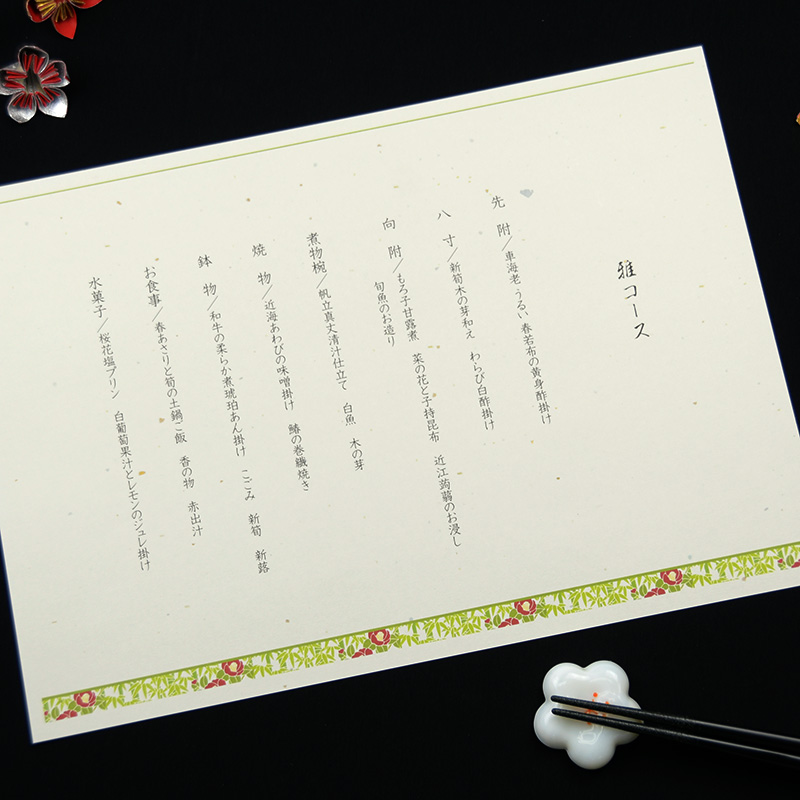 雅コース
先 附／車海老 うるい 春若布の黄身酢掛け
八 寸／新筍木の芽和え わらび白酢掛け
向 附／もろ子甘露煮 菜の花と子持昆布 近江蒟蒻のお浸し
旬魚のお造り
煮物椀／帆立真丈清汁仕立て 白魚 木の芽
焼 物／近海あわびの味噌掛け 鰆の巻繊焼き
鉢 物／和牛の柔らか煮琥珀あん掛け こごみ 新筍 新蕗
お食事／春あさりと筍の土鍋ご飯 香の物 赤出汁
水菓子／桜花塩プリン 白葡萄果汁とレモンのジュレ掛け